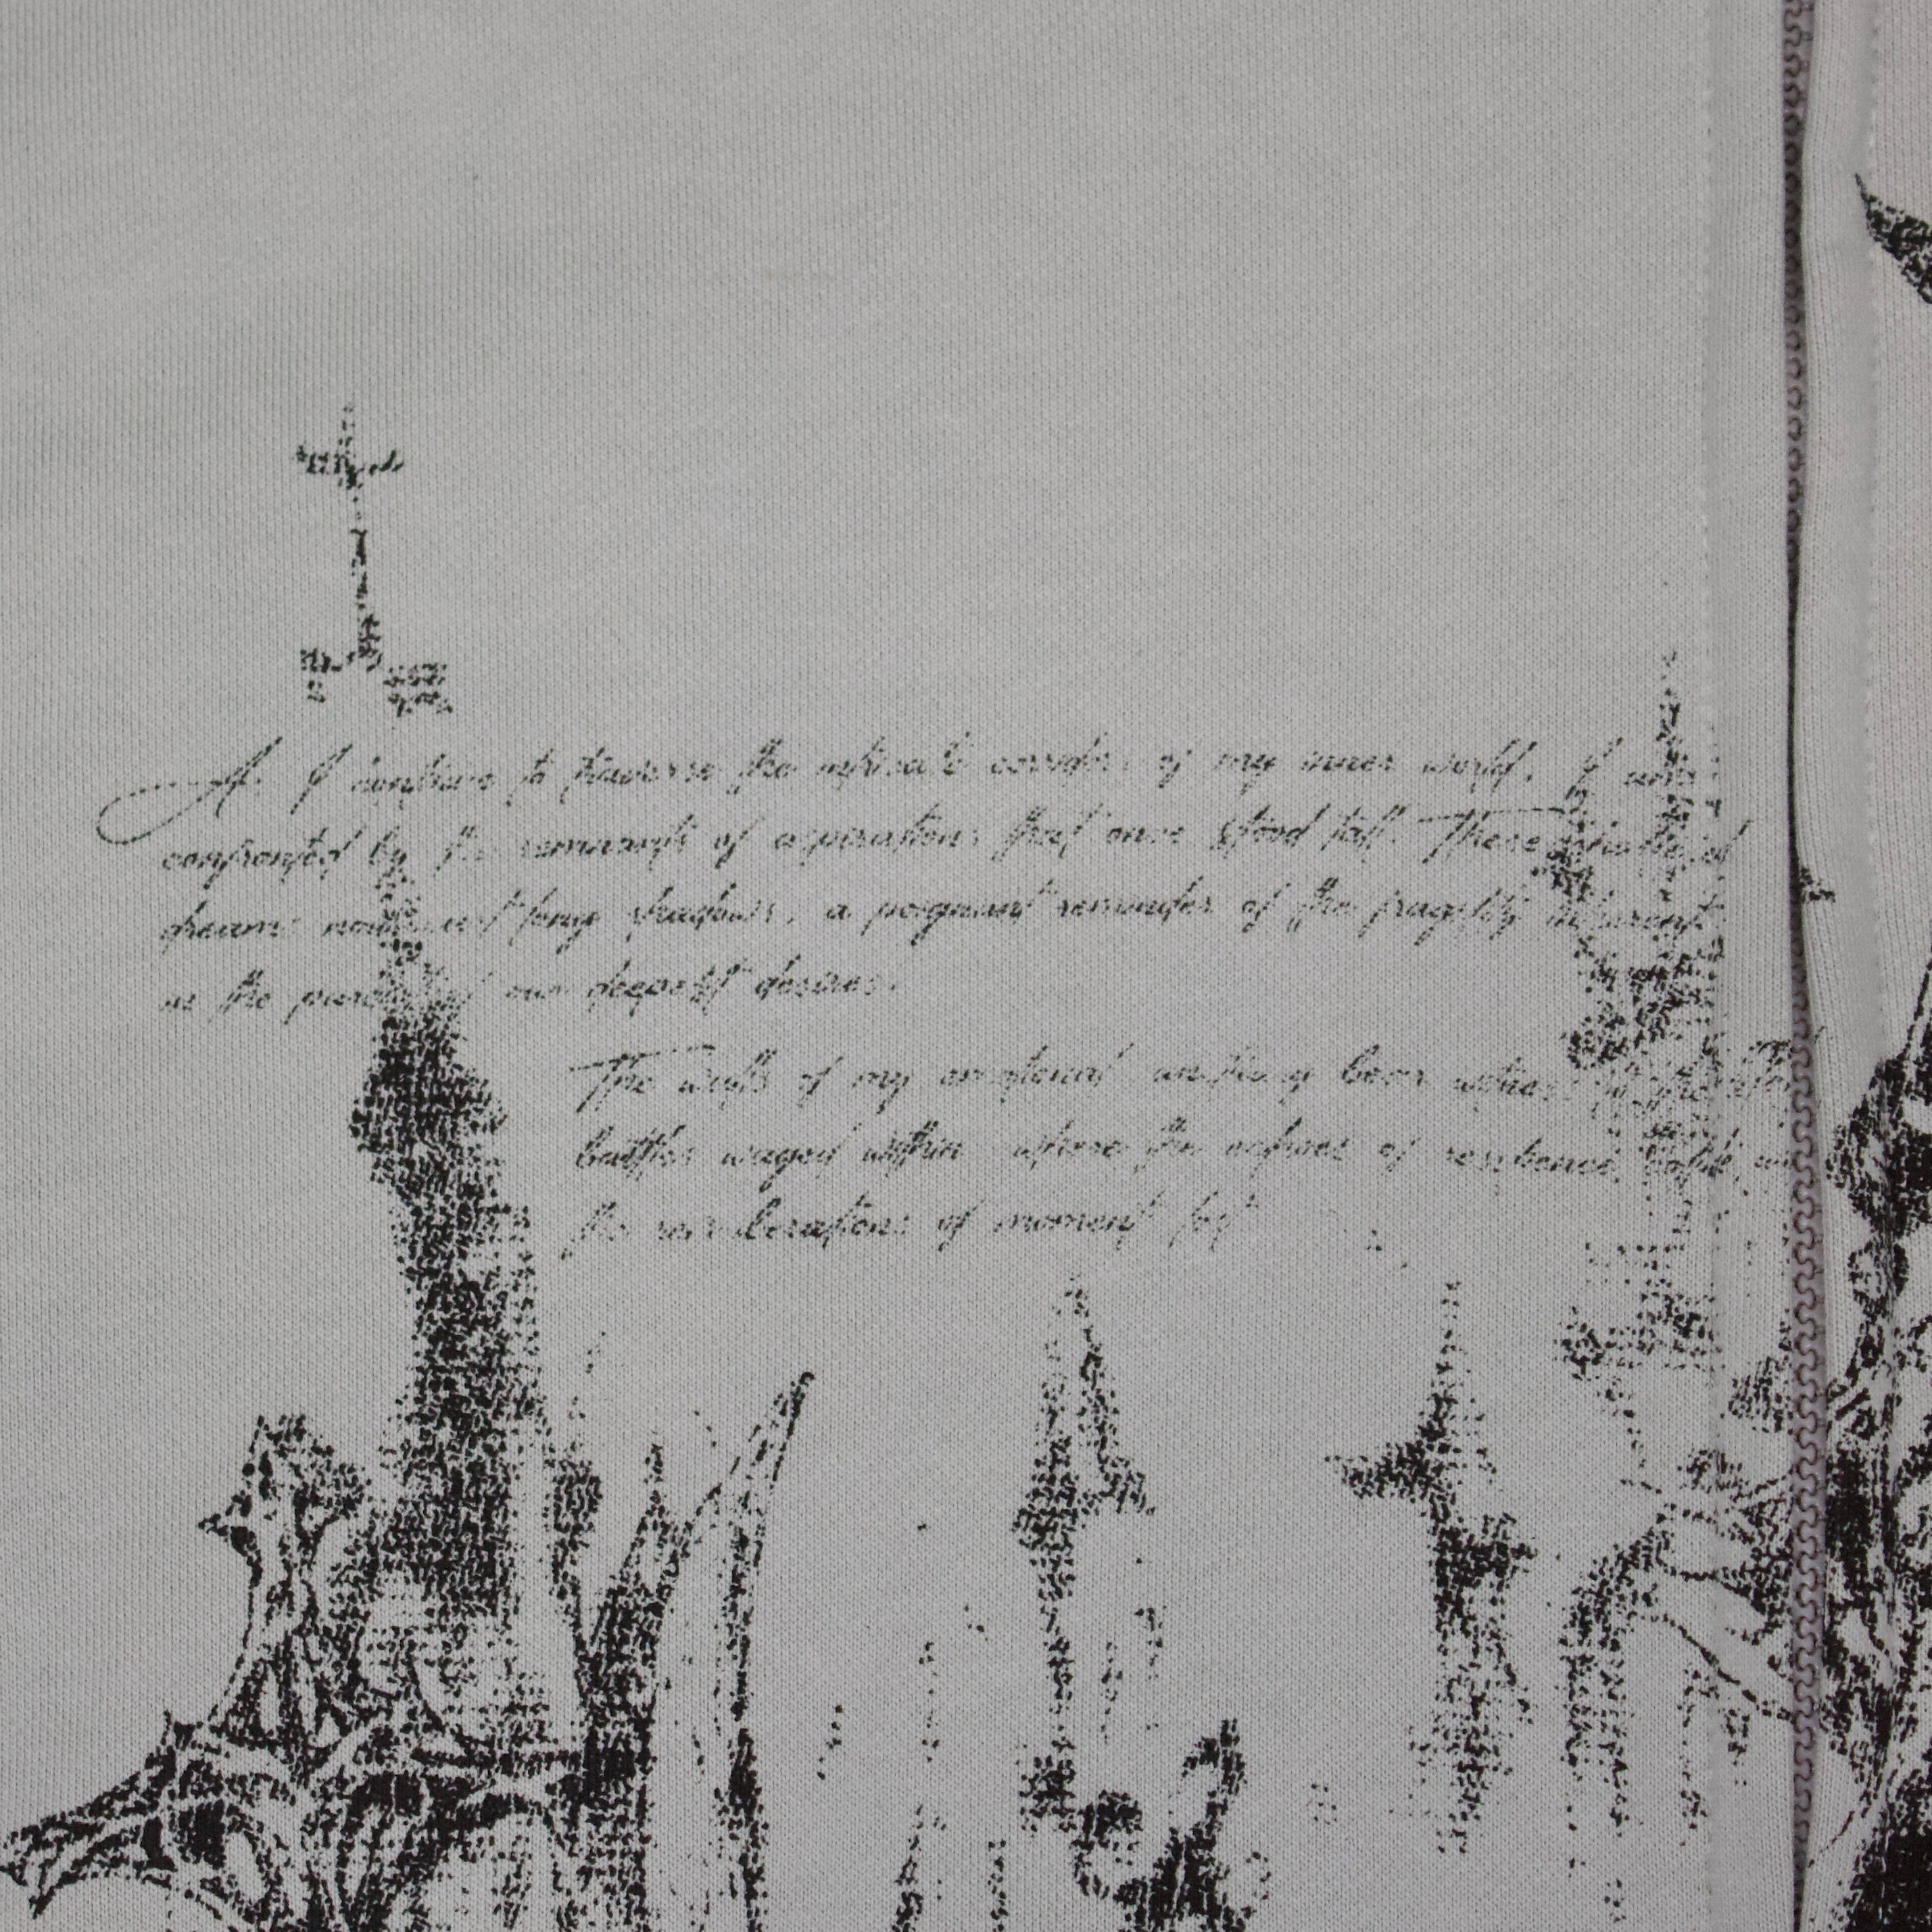 As I continue to traverse the intricate corridors of my inner world, I am
confronted by the remnants of aspirations that once stood tall. These shattered
dreams now cast long shadows, a poignant reminder of the fragility inherent
in the pursuit of our deepest desires.
The walls of my emotional sanctuary bear witness to the
battles waged within, where the echoes of resilience collide with
the reverberations of moment lost